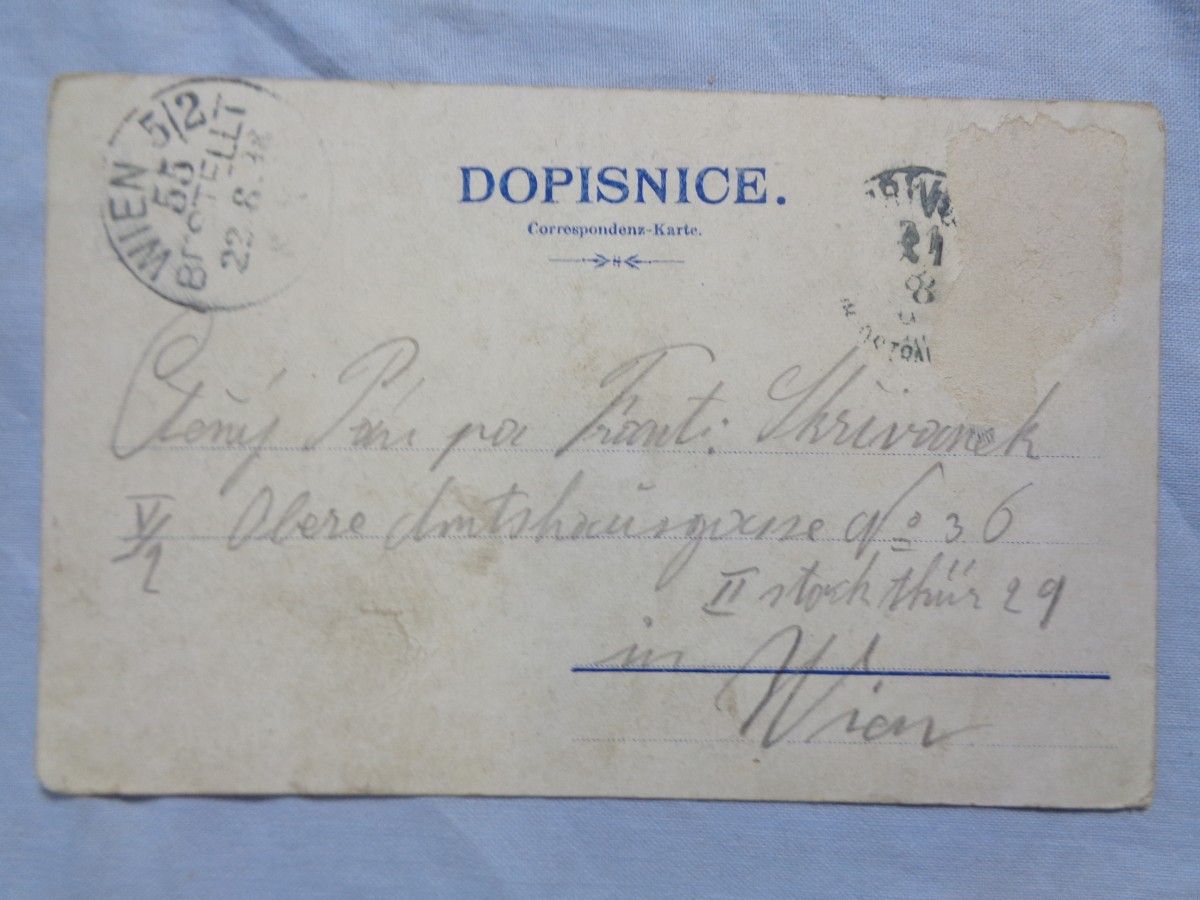 WIEN 5/2
55
BESTELLT
22. 8. 98
DOPISNICE.
Correspondenz-Karte.
21
8
Ctěný Pán pan Frant: Skřivanek
V/2 Obere Amtshausgasse No 36
II stock thür 29
in
Wien